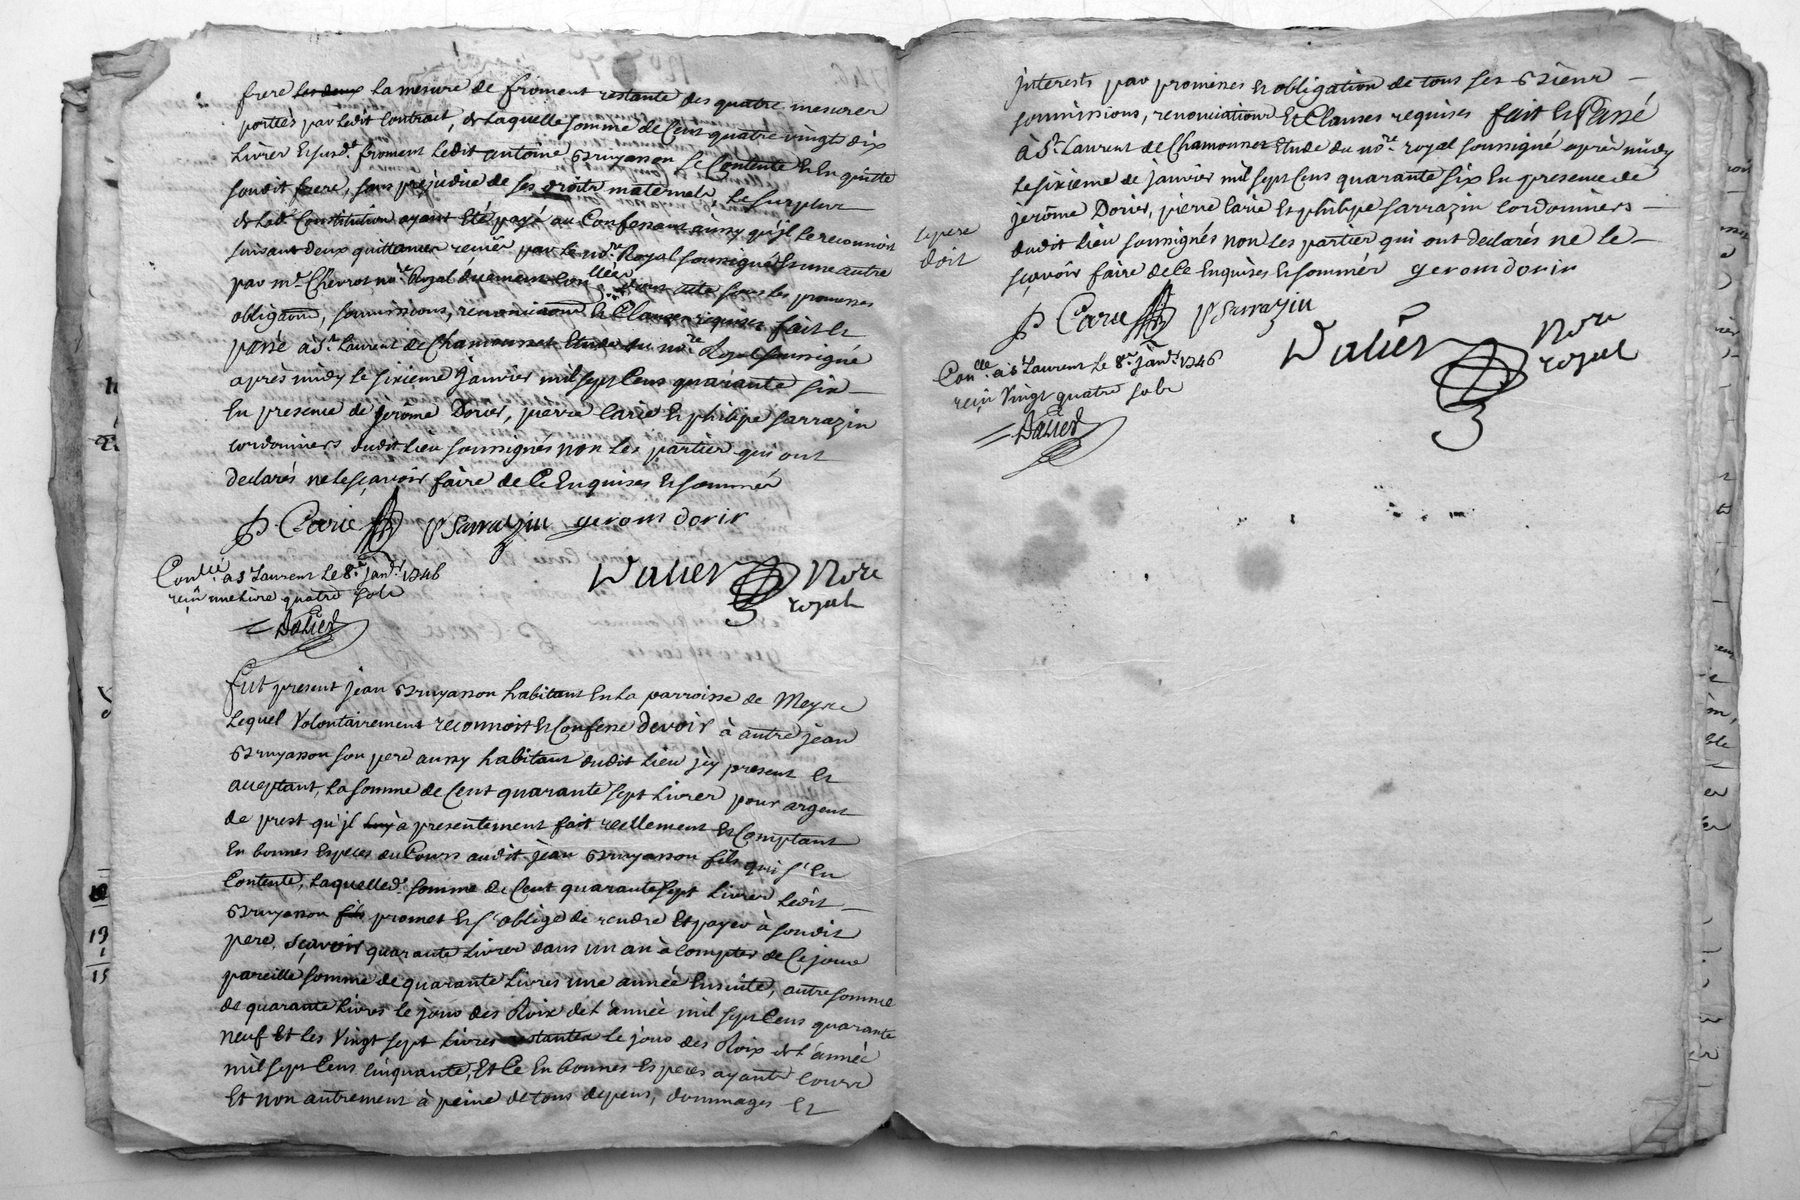 frere la mesure de froment restante des quatre mesures
portées par ledit Contract, de laquelle somme de Cent quatre vingts dix
Livres et susd.t froment ledit antoine Bruyasson se Contente et en quitte
soudit frere, sans prejudice de ses droits maternels, le surplus
de lad.e Constitution ayant été payé au Confessant ainsy qu'jl le reconnoit
suivant deux quittances par le no.re Royal soussigné et une autre
par m.e Chevrot no.re Royal duement Con.llée sous les promesses
obliga.ons, soumissions, renonciations et Clauses requises fait et
passé à S.t Laurent de Chamousset Etude du no.re Royal soussigné
après midy le sixieme Janvier mil sept Cens quarante six
En presence de Jerôme Dorier, pierre Carie et philipe Sarrazin
cordonniers dudit lieu soussignés non les parties qui ont
declarés ne le sçavoir faire de Ce Enquises et sommés
P. Carie P Sarrazin gerom dorir
Con.llé à S Laurent le 8.e Janv.r 1746
reçu une livre quatre sols
Dalier
Dalier No.re
royal
Fut present Jean Bruyasson habitant en la parroisse de Meyse
Lequel Volontairement reconnoit et Confesse devoir à autre Jean
Bruyasson son pere aussy habitant dudit lieu jcy present et
acceptant, la somme de Cent quarante sept Livres pour argent
de prest qu'jl à presentement fait reellement et Comptant
En bonnes Especes du Cours audit Jean Bruyasson fils qui s'en
Contente, laquelle d.e somme de Cent quarante sept Livres ledit
Bruyasson fils promet et s'oblige de rendre et payer à soudit
pere, sçavoir quarante Livres dans un an à Compter de Ce jour
pareille somme de quarante Livres une année Ensuite, autre somme
de quarante Livres le jour des Roix de l'année mil sept Cens quarante
neuf et les Vingt sept Livres restantes le jour des Roix de l'année
mil sept Cens Cinquante, et Ce En bonnes Especes ayants Cours
Et non autrement à peine de tous depens, dommages et
jnterests par promesses et obligation de tous ses Biens
soumissions, renonciations et Clauses requises fait et Passé
à S.t Laurent de Chamousset Etude du no.re royal soussigné après midy
le sixieme de Janvier mil sept Cens quarante six En presence de
Jerôme Dorier, pierre Carie et philipe Sarrazin Cordonniers
dudit lieu soussignés non les parties qui ont declarés ne le
sçavoir faire de Ce Enquises et sommés gerom dorir
le pere
doit
P. Carie P Sarrazin
Dalier No.re
royal
Con.llé à S Laurent le 8.e Janv.r 1746
reçu Vingt quatre sols
Dalier